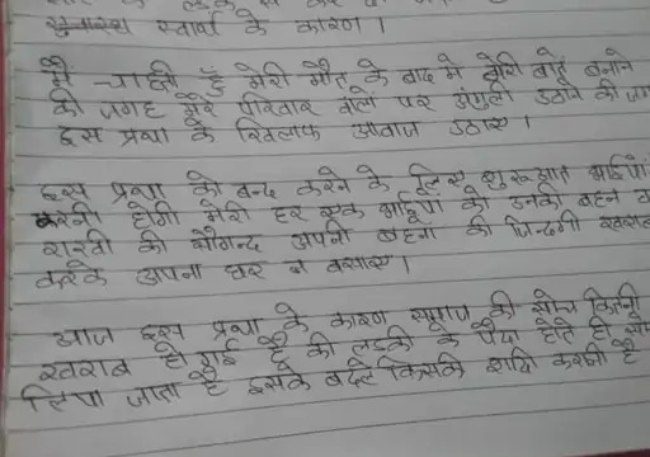 स्वार्थ के कारण ।
मैं चाहती हूँ मेरी मौत के बाद मे मेरी बाते बनाने
की जगह मेरे परिवार वालें पर अंगुली उठाने की जग
इस प्रथा के खिलाफ आवाज उठाए ।
इस प्रथा को बन्द करने के लिए शुरूआत भाईयों
करनी होगी मेरी हर एक भाईयों को उनकी बहन व
राखी की सौगन्द अपनी बहनो की जिन्दगी खराब
करके अपना घर न बसाए ।
आज इस प्रथा के कारण समाज की सोच कितनी
खराब हो गई है की लड़की के पैदा होते ही सो
लिया जाता है इसके बदले किसकी शादि करनी है